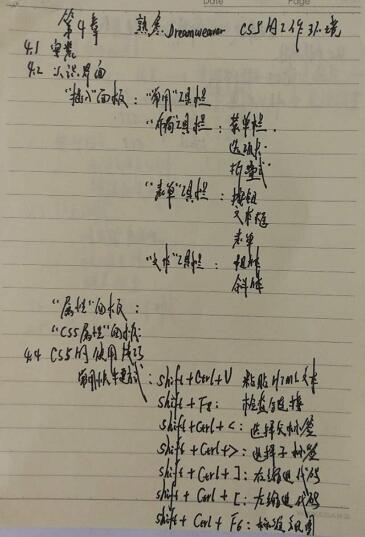 Date Page
第4章 熟悉Dreamweaver CS5的工作环境
4.1 安装
4.2 认识界面
"插入"面板："常用"工具栏
"布局"工具栏：菜单栏.
选项卡
折叠式
"表单"工具栏：按钮
文本框
表单
"文本"工具栏：粗体
斜体
"属性"面板：
"CSS属性"面板：
4.4 CS5的使用技巧
常用快捷键方式：shift+Ctrl+V 粘贴HTML文本
shift+F8：检查链接
shift+Ctrl+<：选择父标签
shift+Ctrl+>：选择子标签
shift+Ctrl+]：右缩进代码
shift+Ctrl+[：左缩进代码
shift+Ctrl+F6：标准视图